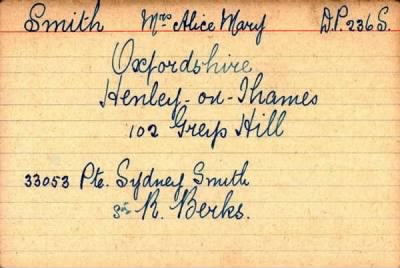 Smith Mrs Alice Mary D.P. 236 S.
Oxfordshire
Henley-on-Thames
102 Greys Hill
33053 Pte. Sydney Smith
R. Berks.